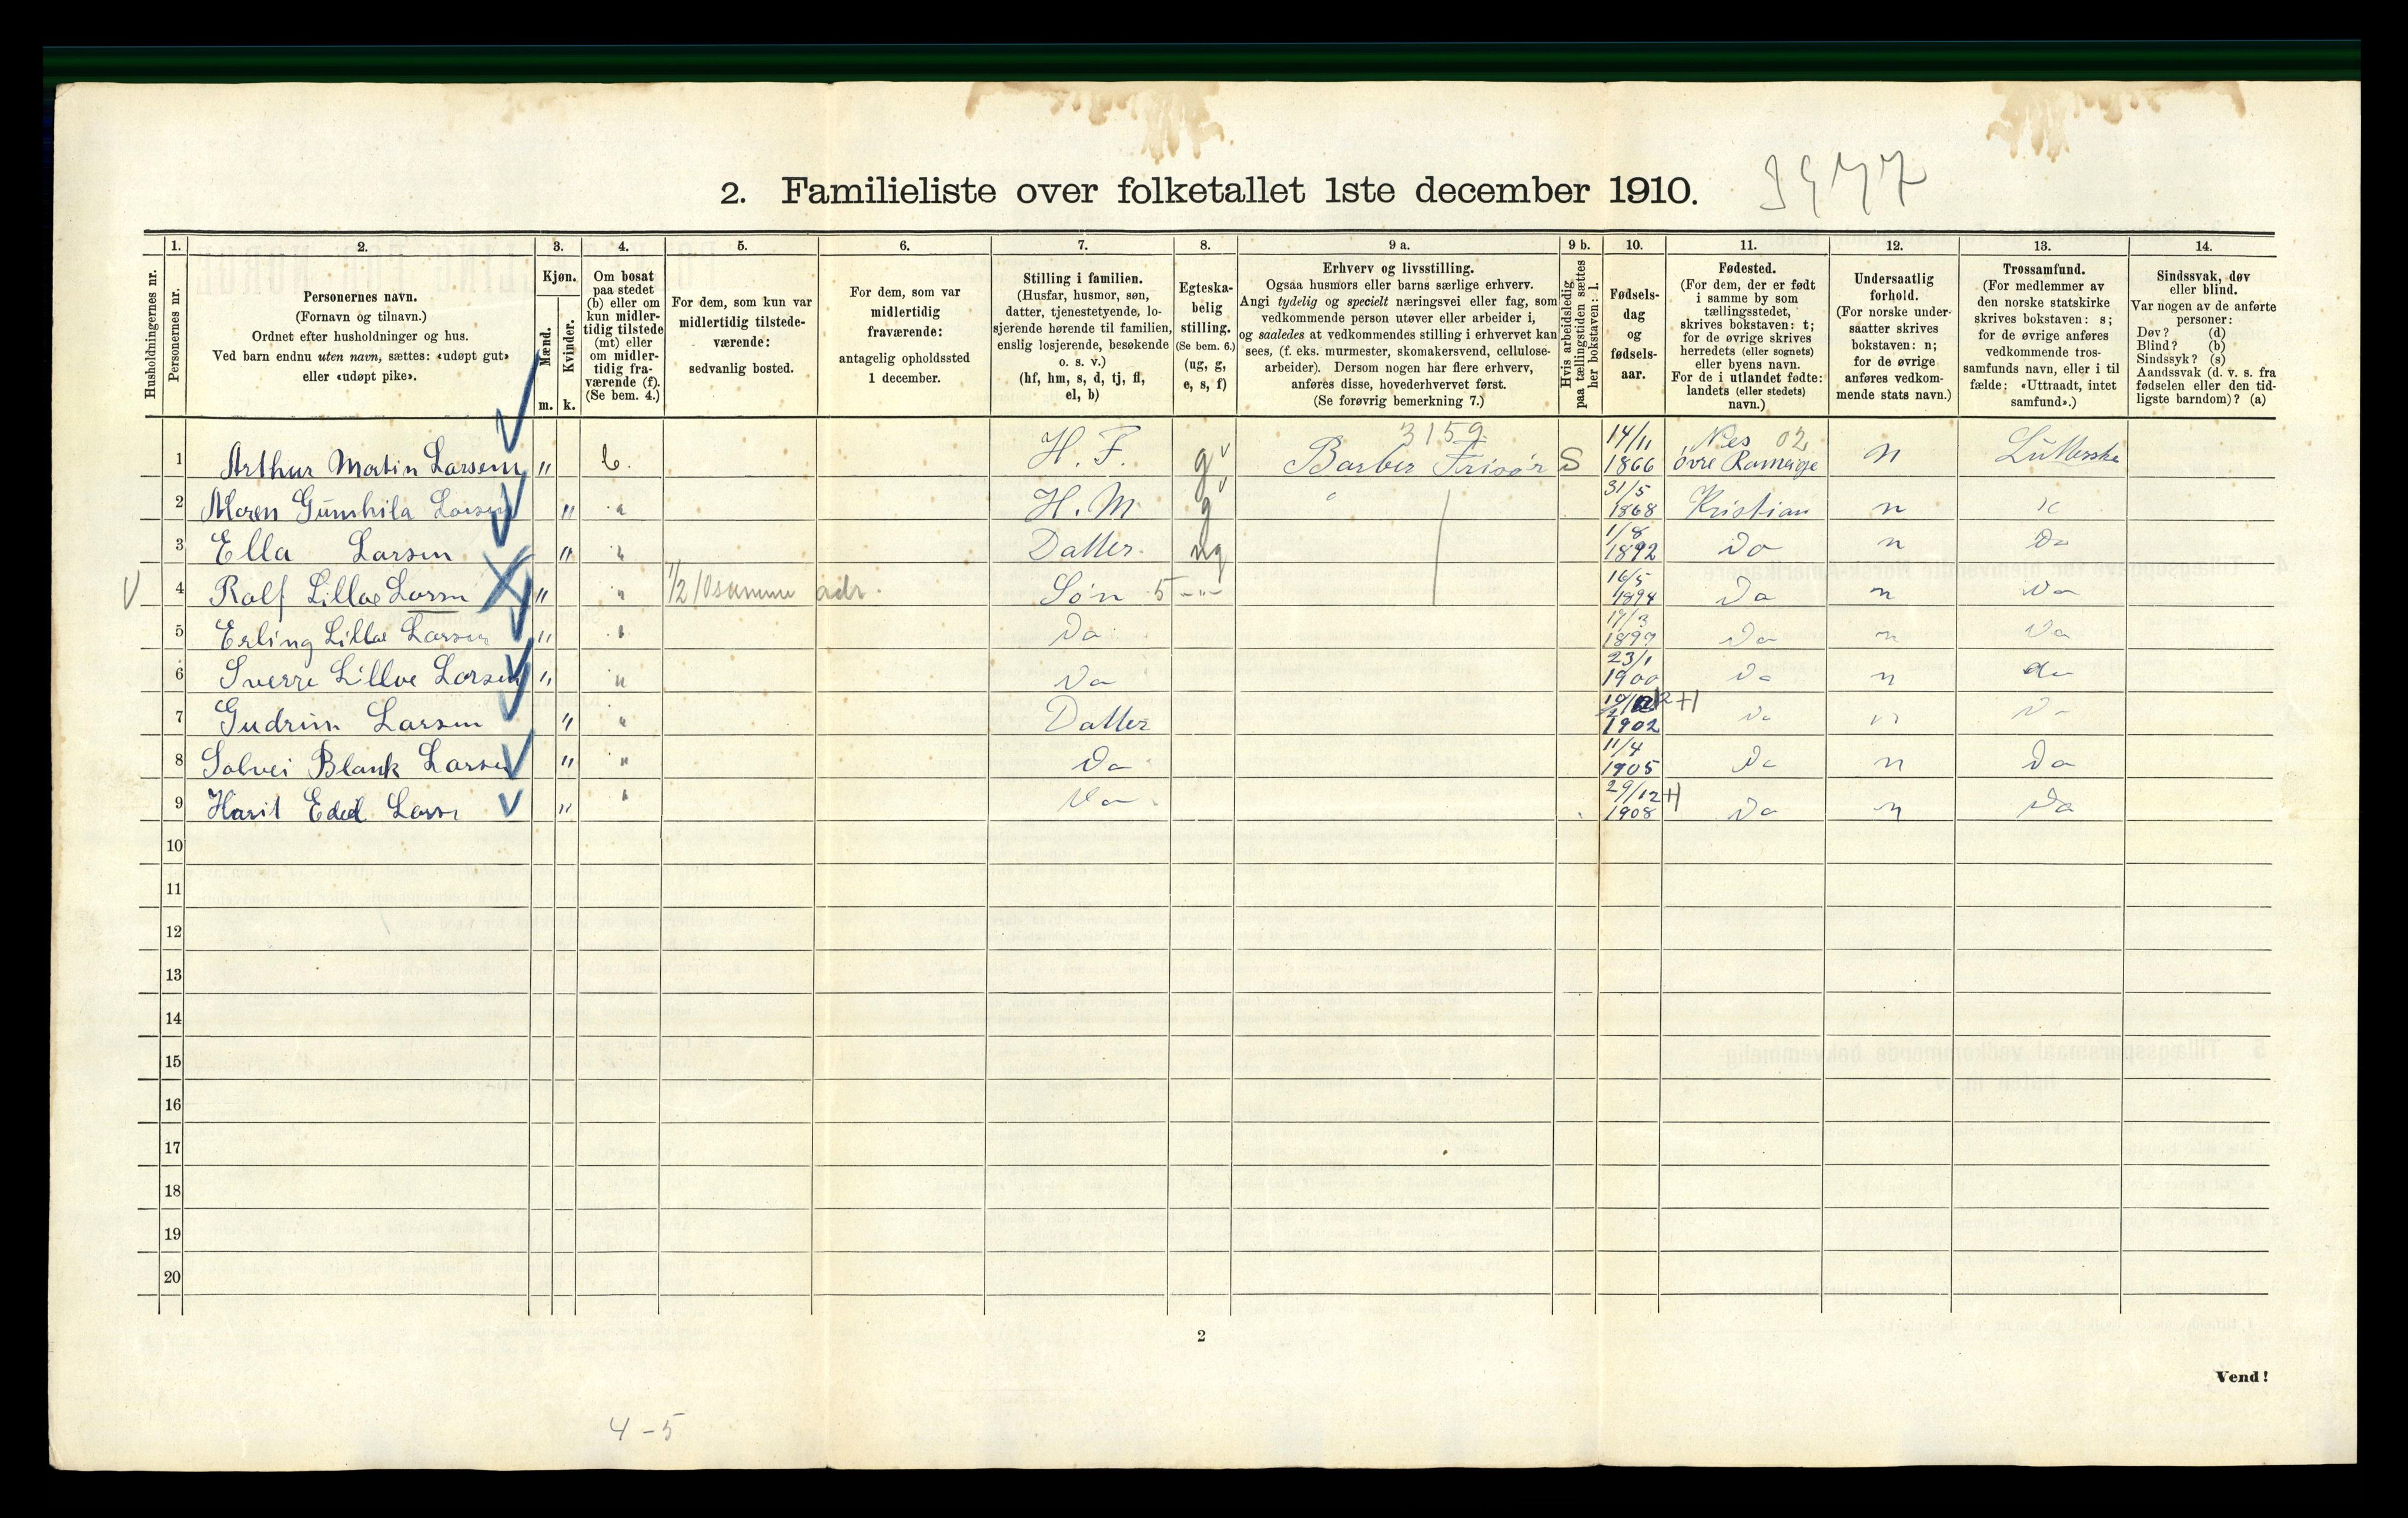 2. Familieliste over folketallet 1ste december 1910. 3977
Husholdningernes nr.
1. Personernes nr.
2. Personernes navn.
(Fornavn og tilnavn.)
Ordnet efter husholdninger og hus.
Ved barn endnu uten navn, sættes: «udøpt gut»
eller «udøpt pike».
3. Kjøn.
Mænd. Kvinder.
m. k.
4. Om bosat
paa stedet
(b) eller om
kun midler-
tidig tilstede
(mt) eller
om midler-
tidig fra-
værende (f).
(Se bem. 4.)
5. For dem, som kun var
midlertidig tilstede-
værende:
sedvanlig bosted.
6. For dem, som var
midlertidig
fraværende:
antagelig opholdssted
1 december.
7. Stilling i familien.
(Husfar, husmor, søn,
datter, tjenestetyende, lo-
sjerende hørende til familien,
enslig losjerende, besøkende
o. s. v.)
(hf, hm, s, d, tj, fl,
el, b)
8. Egteska-
belig
stilling.
(Se bem. 6.)
(ug, g,
e, s, f)
9 a. Erhverv og livsstilling.
Ogsaa husmors eller barns særlige erhverv.
Angi tydelig og specielt næringsvei eller fag, som
vedkommende person utøver eller arbeider i,
og saaledes at vedkommendes stilling i erhvervet kan
sees, (f. eks. murmester, skomakersvend, cellulose-
arbeider). Dersom nogen har flere erhverv,
anføres disse, hovederhvervet først.
(Se forøvrig bemerkning 7.)
9 b. Hvis arbeidsledig
paa tællingstiden sættes
her bokstaven: l.
10. Fødsels-
dag
og
fødsels-
aar.
11. Fødested.
(For dem, der er født
i samme by som
tællingsstedet,
skrives bokstaven: t;
for de øvrige skrives
herredets (eller sognets)
eller byens navn.
For de i utlandet fødte:
landets (eller stedets)
navn.)
12. Undersaatlig
forhold.
(For norske under-
saatter skrives
bokstaven: n;
for de øvrige
anføres vedkom-
mende stats navn.)
13. Trossamfund.
(For medlemmer av
den norske statskirke
skrives bokstaven: s;
for de øvrige anføres
vedkommende tros-
samfunds navn, eller i til
fælde: «Uttraadt, intet
samfund».)
14. Sindssvak, døv
eller blind.
Var nogen av de anførte
personer:
Døv? (d)
Blind? (b)
Sindssyk? (s)
Aandssvak (d. v. s. fra
fødselen eller den tid-
ligste barndom)? (a)
3159 14/11 Nes 02
1 Arthur Martin Larsen " b. H. F. g Barber Frisør S 1866 øvre Romeige n
31/5
2 Maren Gunhila Larsen " " H. M g 1868 Kristian n
1/8
3 Ella Larsen " " Datter ug 1892 Do n Do
16/5
4 Rolf Lilloe Larsen " " 1/2 10 samme adr. Søn 5 -"- 1894 Do n Do
17/3
5 Erling Lilloe Larsen " " Do 1897 Do n Do
23/1
6 Sverre Lilloe Larsen " " Do 1900 Do n do
7 Gudrun Larsen " " Datter 1902 Do n Do
11/4
8 Solvei Blank Larsen " " Do 1905 Do n Do
29/12
9 Harit Eded Larsen " " Do 1908 Do n Do
10
11
12
13
14
15
16
17
18
19
20
2
Vend!
4-5